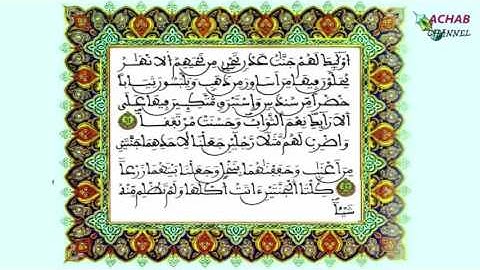 ACHAB
CHANNEL
أُوْلَٰئِكَ لَهُمْ جَنَّٰتُ عَدْنٍ تَجْرِے مِن تَحْتِهِمُ الَانْهَٰرُ
يُحَلَّوْنَ فِيهَا مِنَ اَسَاوِرَ مِن ذَهَبٍ وَيَلْبَسُونَ ثِيَاباً
خُضْراً مِّن سُندُسٍ وَإِسْتَبْرَقٍ مُّتَّكِـِٕينَ فِيهَا عَلَى
الَارَآئِكِ نِعْمَ الثَّوَابُ وَحَسُنَتْ مُرْتَفَقاً
وَاضْرِبْ لَهُم مَّثَلاً رَّجُلَيْنِ جَعَلْنَا لِأَحَدِهِمَا جَنَّتَيْنِ
مِنَ اَعْنَٰبٍ وَحَفَفْنَٰهُمَا بِنَخْلٍ وَجَعَلْنَا بَيْنَهُمَا زَرْعاً
كِلْتَا اَلْجَنَّتَيْنِ ءَاتَتُ اكْلَهَا وَلَمْ تَظْلِم مِّنْهُ
شَيْـٔاً